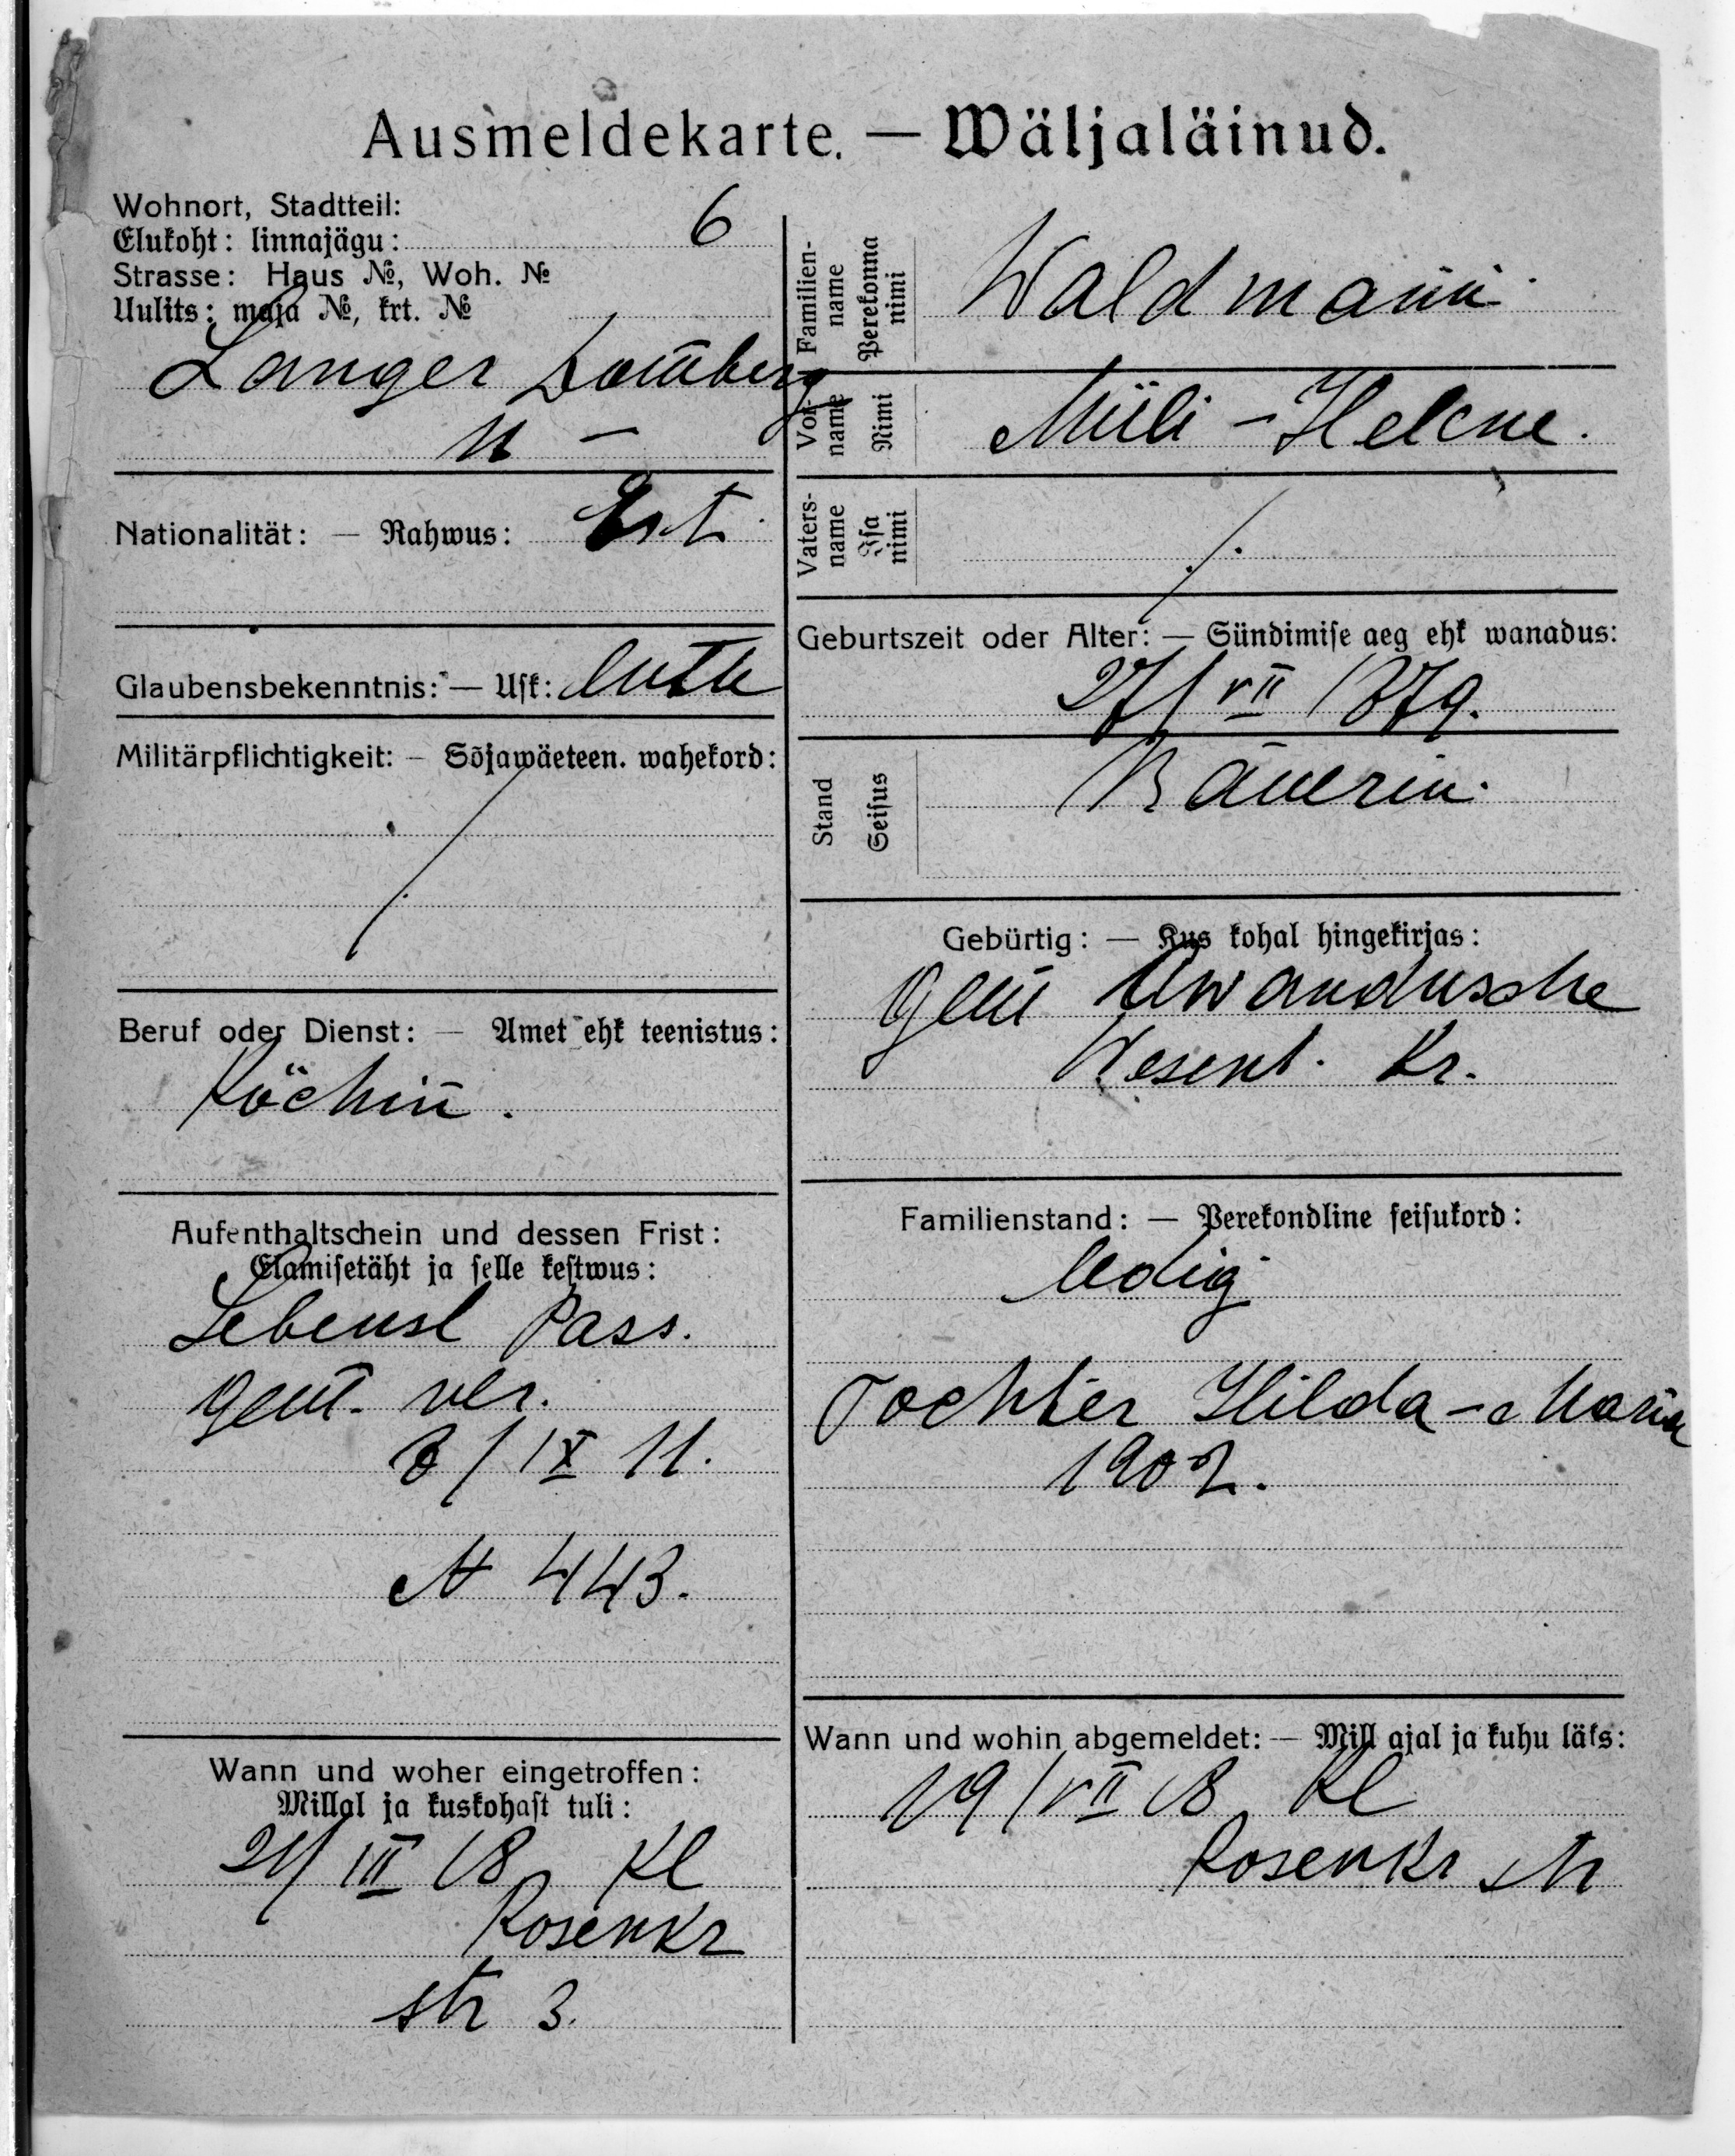 Ausmeldekarte. — Wäljaläinud.
Wohnort, Stadtteil:
Elukoht: linnajägu: 6
Strasse: Haus №, Woh. №
Uulits: maja №, krt. №
Langer Dom̄berg
11 —
Nationalität: — Rahwus: Est.
Glaubensbekenntnis: — Usk: luth
Militärpflichtigkeit: — Sõjawäeteen. wahekord:
/
Beruf oder Dienst: — Amet ehk teenistus:
Köchin.
Aufenthaltschein und dessen Frist:
Elamisetäht ja selle kestwus:
Lebensl Pass.
gem̄. ver.
8/IX 11.
N 443.
Wann und woher eingetroffen:
Millal ja kuskohast tuli:
21/III 18 Kl
Rosenkr
str 3.
Familien-
name
Perekonna
nimi
Waldmann
Vor-
name
Nimi
Miili-Helene.
Vaters-
name
Isa
nimi
./.
Geburtszeit oder Alter: — Sündimise aeg ehk wanadus:
27/VII 1879.
Stand
Seisus
Bäuerin.
Gebürtig: — Kus kohal hingekirjas:
gem̄ Awandusche
Wesenb. Kr.
Familienstand: — Perekondline seisukord:
ledig
Tochter Hilda-Maria
1902.
Wann und wohin abgemeldet: — Mill ajal ja kuhu läks:
19/VII 18 Kl
Rosenkr